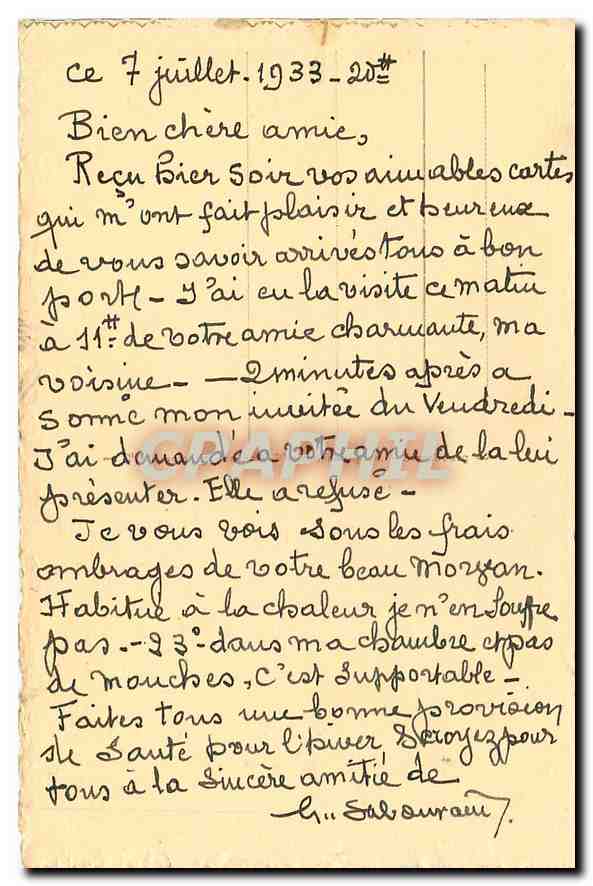 ce 7 juillet. 1933 - 20H
Bien chère amie,
Reçu hier soir vos aimables cartes
qui m'ont fait plaisir et heureux
de vous savoir arrivés tous à bon
port - J'ai eu la visite ce matin
à 11H. de votre amie charmante, ma
voisine - - 2 minutes après a
sonné mon invitée du Vendredi -
J'ai demandé a votre amie de la lui
présenter. Elle a refusé -
Je vous vois sous les frais
ombrages de votre beau Morvan.
Habitué à la chaleur je n'en souffre
pas. - 23° dans ma chambre et pas
de mouches, c'est supportable -
Faites tous une bonne provision
de santé pour l'hiver & croyez pour
tous à la sincère amitié de
GRAPHIL